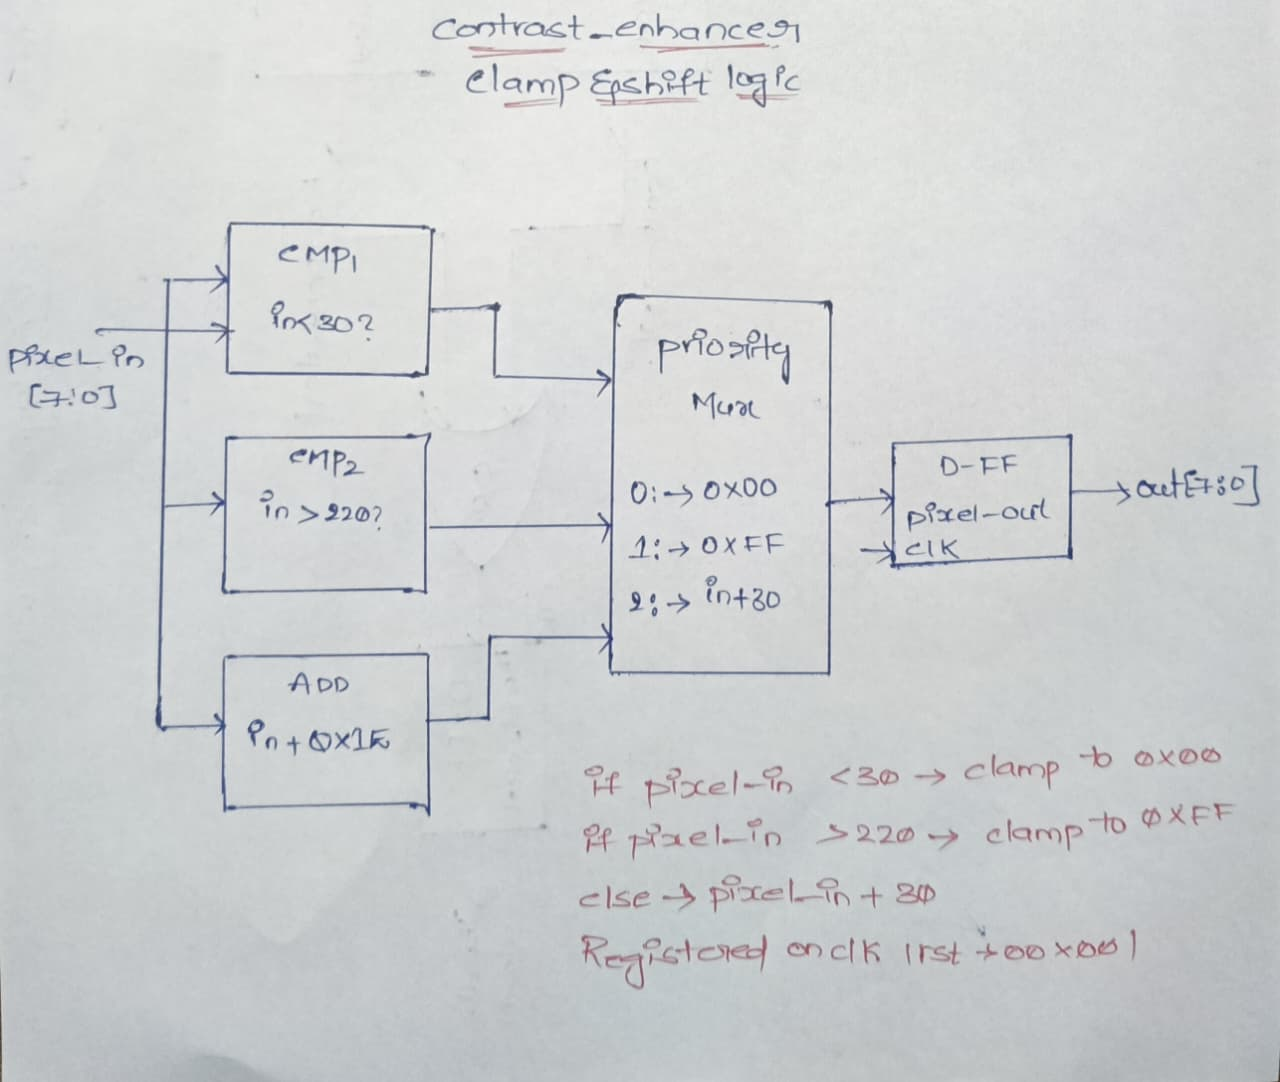 Contrast_enhancer
Clamp & shift logic
CMP1
in<30?
pixel in
[7:0]
CMP2
in >220?
ADD
in + 0x1E
priority
Mux
0: → 0x00
1: → 0xFF
2: → in+30
D-FF
pixel-out
clk
out[7:0]
if pixel-in <30 → clamp to 0x00
if pixel-in >220 → clamp to 0xFF
else → pixel-in + 30
Registered on clk